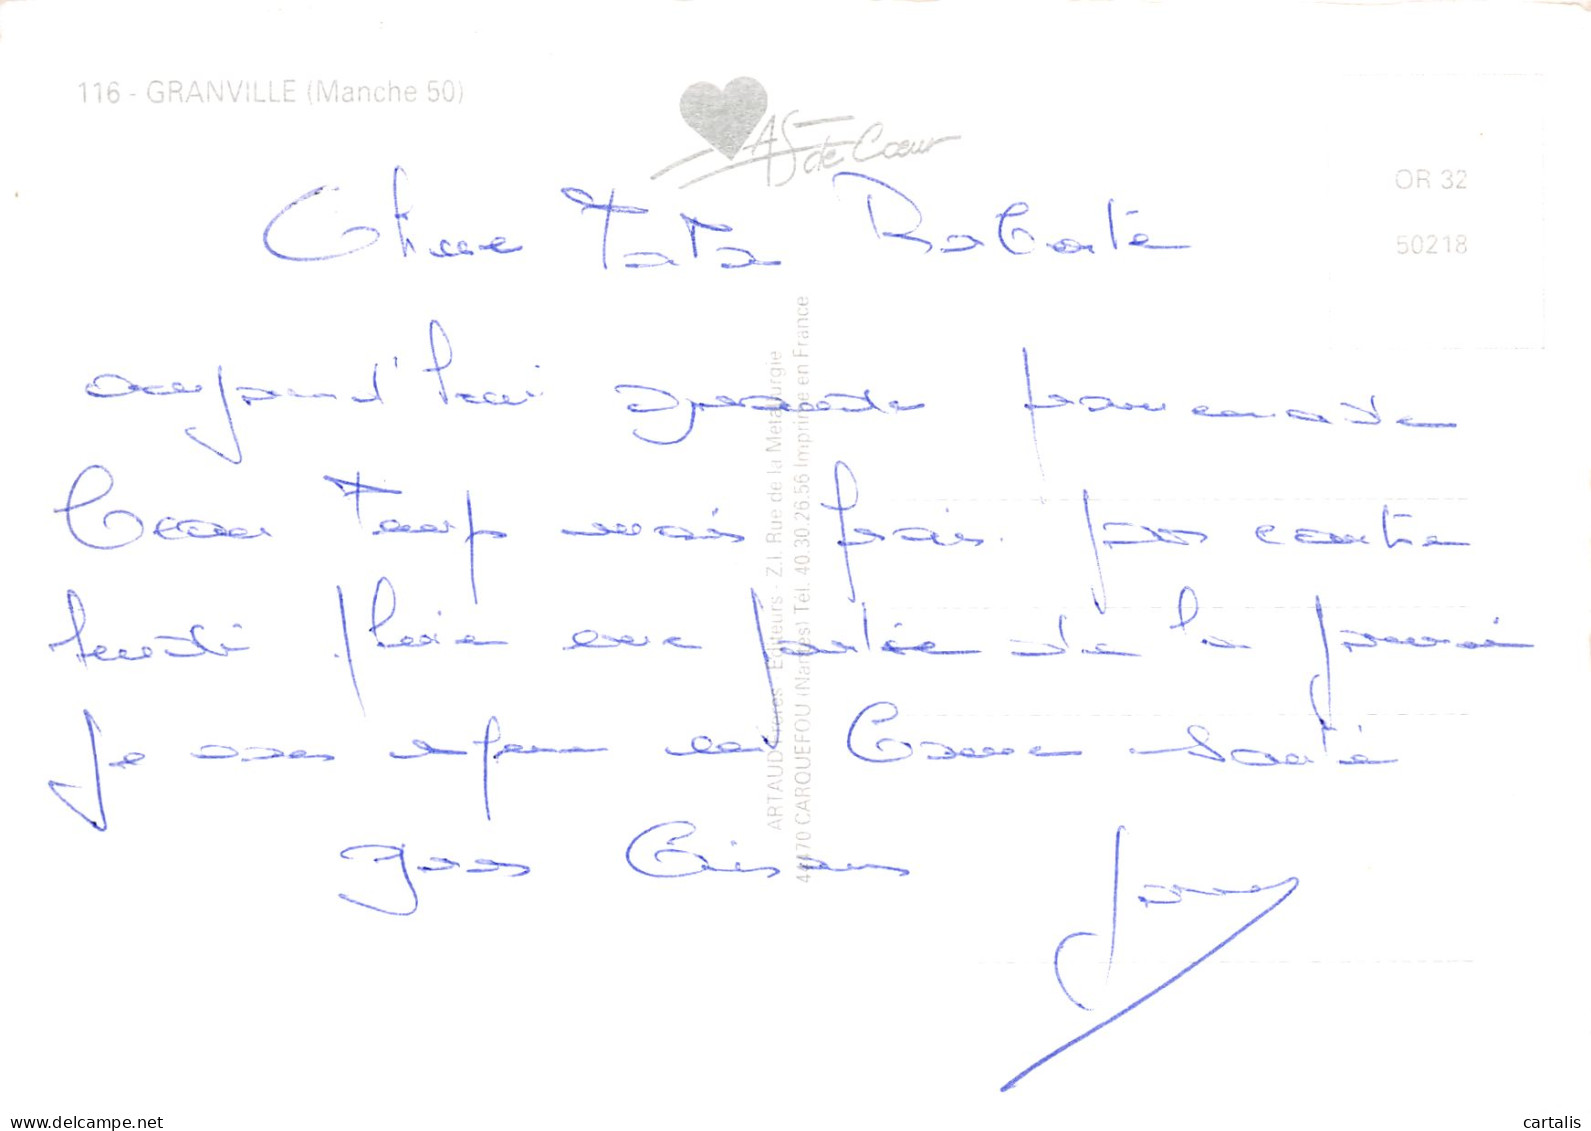 116 - GRANVILLE (Manche 50)
AS de Cœur
OR 32
50218
Chere Tata
aujourd'hui grande promenade
beau temps mais frais. par contre
lundi pluie une partie de la
Je vous espere en bonne santé
gros bisous
ARTAUD Frères - Editeurs - Z.I. Rue de la Métallurgie
44470 CARQUEFOU (Nantes) Tél. 40.30.26.56 Imprimé en France
delcampe.net
cartalis